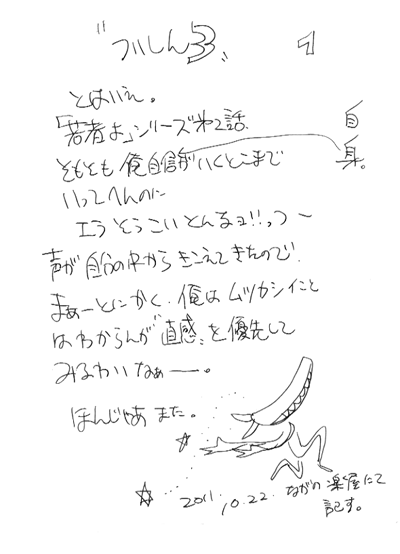 "ついしん3"
1
とはいえ。
「若者よ」シリーズ第2話、
そもそも俺自信がいくとこまで
自身。
いってへんのに
エラそうこいとんるヨ!!っつ〜
声が自分の中からきこえてきたので!
まぁーとにかく、俺はムツカシイこと
はわからんが"直感"を優先して
みるわいなぁー。
ほんじゃあまた。
2011.10.22. ながの楽屋にて
記す。